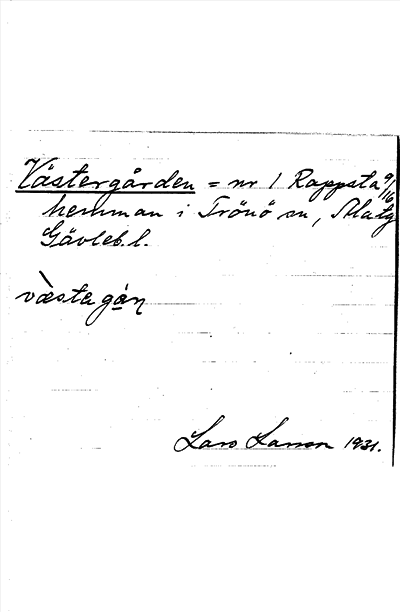 Västergården = nr 1 Rappsta 9/16
hemman i Trönö sn,
Gävleb.l.
væsta gán
Lars Larson 1931.